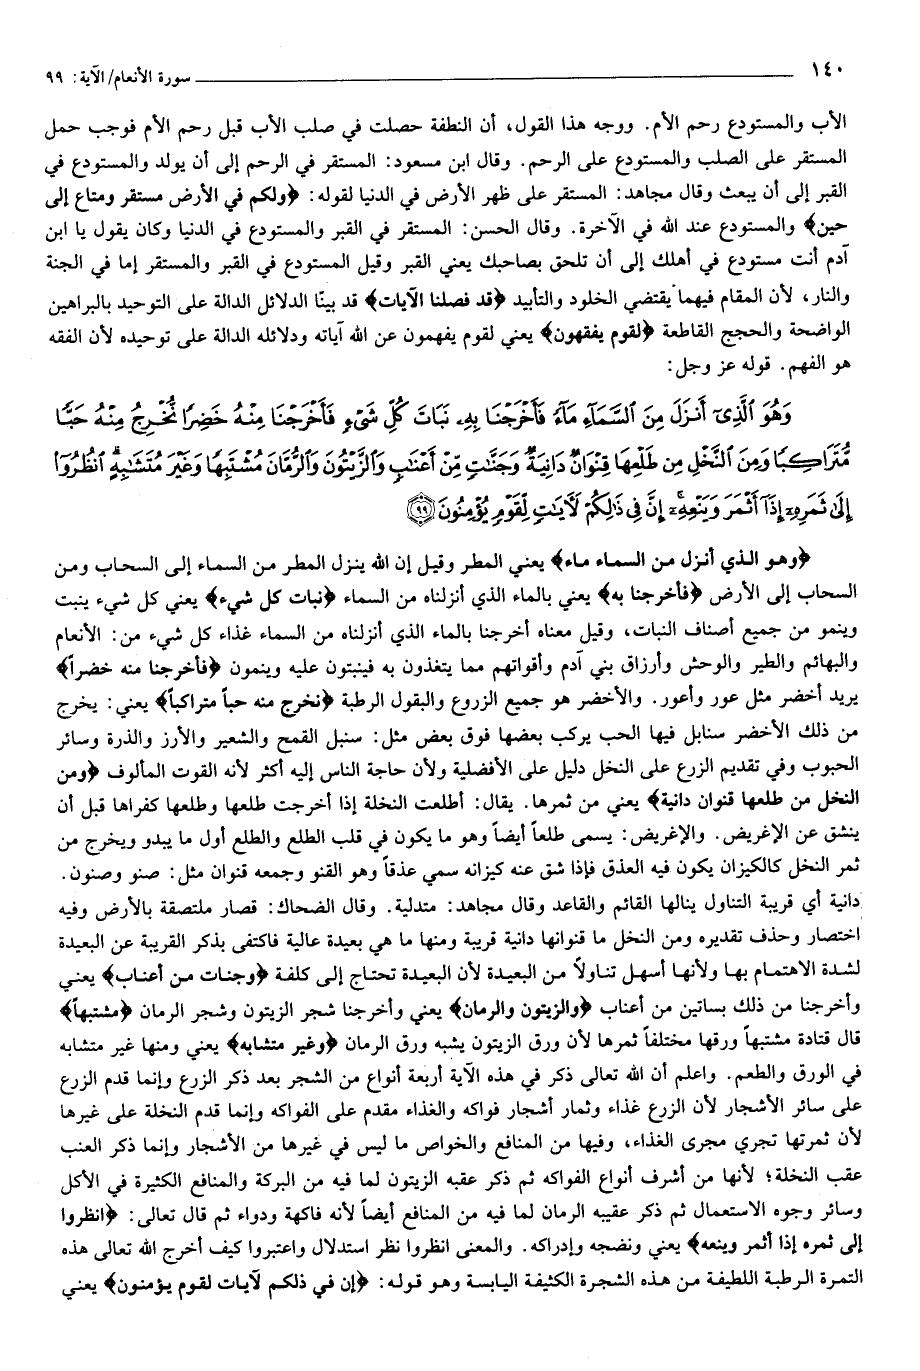 ١٤٠ سورة الأنعام/ الآية: ٩٩
الأب والمستودع رحم الأم. ووجه هذا القول، أن النطفة حصلت في صلب الأب قبل رحم الأم فوجب حمل
المستقر على الصلب والمستودع على الرحم. وقال ابن مسعود: المستقر في الرحم إلى أن يولد والمستودع في
القبر إلى أن يبعث وقال مجاهد: المستقر على ظهر الأرض في الدنيا لقوله: ﴿ولكم في الأرض مستقر ومتاع إلى
حين﴾ والمستودع عند الله في الآخرة. وقال الحسن: المستقر في القبر والمستودع في الدنيا وكان يقول يا ابن
آدم أنت مستودع في أهلك إلى أن تلحق بصاحبك يعني القبر وقيل المستودع في القبر والمستقر إما في الجنة
والنار، لأن المقام فيهما يقتضي الخلود والتأبيد ﴿قد فصلنا الآيات﴾ قد بينّا الدلائل الدالة على التوحيد بالبراهين
الواضحة والحجج القاطعة ﴿لقوم يفقهون﴾ يعني لقوم يفهمون عن الله آياته ودلائله الدالة على توحيده لأن الفقه
هو الفهم. قوله عز وجل:
وَهُوَ ٱلَّذِىٓ أَنزَلَ مِنَ ٱلسَّمَآءِ مَآءً فَأَخْرَجْنَا بِهِۦ نَبَاتَ كُلِّ شَىْءٍ فَأَخْرَجْنَا مِنْهُ خَضِرًا نُّخْرِجُ مِنْهُ حَبًّا
مُّتَرَاكِبًا وَمِنَ ٱلنَّخْلِ مِن طَلْعِهَا قِنْوَانٌ دَانِيَةٌ وَجَنَّٰتٍ مِّنْ أَعْنَابٍ وَٱلزَّيْتُونَ وَٱلرُّمَّانَ مُشْتَبِهًا وَغَيْرَ مُتَشَٰبِهٍ ۗ ٱنظُرُوٓا۟
إِلَىٰ ثَمَرِهِۦٓ إِذَآ أَثْمَرَ وَيَنْعِهِۦٓ ۚ إِنَّ فِى ذَٰلِكُمْ لَءَايَٰتٍ لِّقَوْمٍ يُؤْمِنُونَ ٩٩
﴿وهو الذي أنزل من السماء ماء﴾ يعني المطر وقيل إن الله ينزل المطر من السماء إلى السحاب ومن
السحاب إلى الأرض ﴿فأخرجنا به﴾ يعني بالماء الذي أنزلناه من السماء ﴿نبات كل شيء﴾ يعني كل شيء ينبت
وينمو من جميع أصناف النبات، وقيل معناه أخرجنا بالماء الذي أنزلناه من السماء غذاء كل شيء من: الأنعام
والبهائم والطير والوحش وأرزاق بني آدم وأقواتهم مما يتغذون به فينبتون عليه وينمون ﴿فأخرجنا منه خضراً﴾
يريد أخضر مثل عور وأعور. والأخضر هو جميع الزروع والبقول الرطبة ﴿نخرج منه حباً متراكباً﴾ يعني: يخرج
من ذلك الأخضر سنابل فيها الحب يركب بعضها فوق بعض مثل: سنبل القمح والشعير والأرز والذرة وسائر
الحبوب وفي تقديم الزرع على النخل دليل على الأفضلية ولأن حاجة الناس إليه أكثر لأنه القوت المألوف ﴿ومن
النخل من طلعها قنوان دانية﴾ يعني من ثمرها. يقال: أطلعت النخلة إذا أخرجت طلعها وطلعها كفراها قبل أن
ينشق عن الإغريض. والإغريض: يسمى طلعاً أيضاً وهو ما يكون في قلب الطلع والطلع أول ما يبدو ويخرج من
ثمر النخل كالكيزان يكون فيه العذق فإذا شق عنه كيزانه سمي عذقاً وهو القنو وجمعه قنوان مثل: صنو وصنون.
دانية أي قريبة التناول ينالها القائم والقاعد وقال مجاهد: متدلية. وقال الضحاك: قصار ملتصقة بالأرض وفيه
اختصار وحذف تقديره ومن النخل ما قنوانها دانية قريبة ومنها ما هي بعيدة عالية فاكتفى بذكر القريبة عن البعيدة
لشدة الاهتمام بها ولأنها أسهل تناولاً من البعيدة لأن البعيدة تحتاج إلى كلفة ﴿وجنات من أعناب﴾ يعني
وأخرجنا من ذلك بساتين من أعناب ﴿والزيتون والرمان﴾ يعني وأخرجنا شجر الزيتون وشجر الرمان ﴿مشتبهاً﴾
قال قتادة مشتبهاً ورقها مختلفاً ثمرها لأن ورق الزيتون يشبه ورق الرمان ﴿وغير متشابه﴾ يعني ومنها غير متشابه
في الورق والطعم. واعلم أن الله تعالى ذكر في هذه الآية أربعة أنواع من الشجر بعد ذكر الزرع وإنما قدم الزرع
على سائر الأشجار لأن الزرع غذاء وثمار أشجار فواكه والغذاء مقدم على الفواكه وإنما قدم النخلة على غيرها
لأن ثمرتها تجري مجرى الغذاء، وفيها من المنافع والخواص ما ليس في غيرها من الأشجار وإنما ذكر العنب
عقب النخلة؛ لأنها من أشرف أنواع الفواكه ثم ذكر عقبه الزيتون لما فيه من البركة والمنافع الكثيرة في الأكل
وسائر وجوه الاستعمال ثم ذكر عقيبه الرمان لما فيه من المنافع أيضاً لأنه فاكهة ودواء ثم قال تعالى: ﴿انظروا
إلى ثمره إذا أثمر وينعه﴾ يعني ونضجه وإدراكه. والمعنى انظروا نظر استدلال واعتبروا كيف أخرج الله تعالى هذه
الثمرة الرطبة اللطيفة من هذه الشجرة الكثيفة اليابسة وهو قوله: ﴿إن في ذلكم لآيات لقوم يؤمنون﴾ يعني